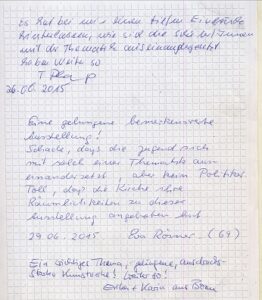 Es hat bei mir einen tiefen Eindruck
hinterlassen, wie sich die Schülerinnen
mit der Thematik auseinandergesetzt
haben. Weiter so
26.06.2015
Eine gelungene bemerkenswerte
Ausstellung!
Schade, dass die Jugend sich
mit solch einer Thematik aus-
einandersetzt, aber kein Politiker.
Toll, dass die Kirche ihre
Räumlichkeiten zu dieser
Ausstellung angeboten hat
29.06.2015 Eva Römer. (64)
Ein wichtiges Thema, gelungene, ausdrucks-
starke Kunstwerke! Weiter so!
Erhart + Karin aus Bonn